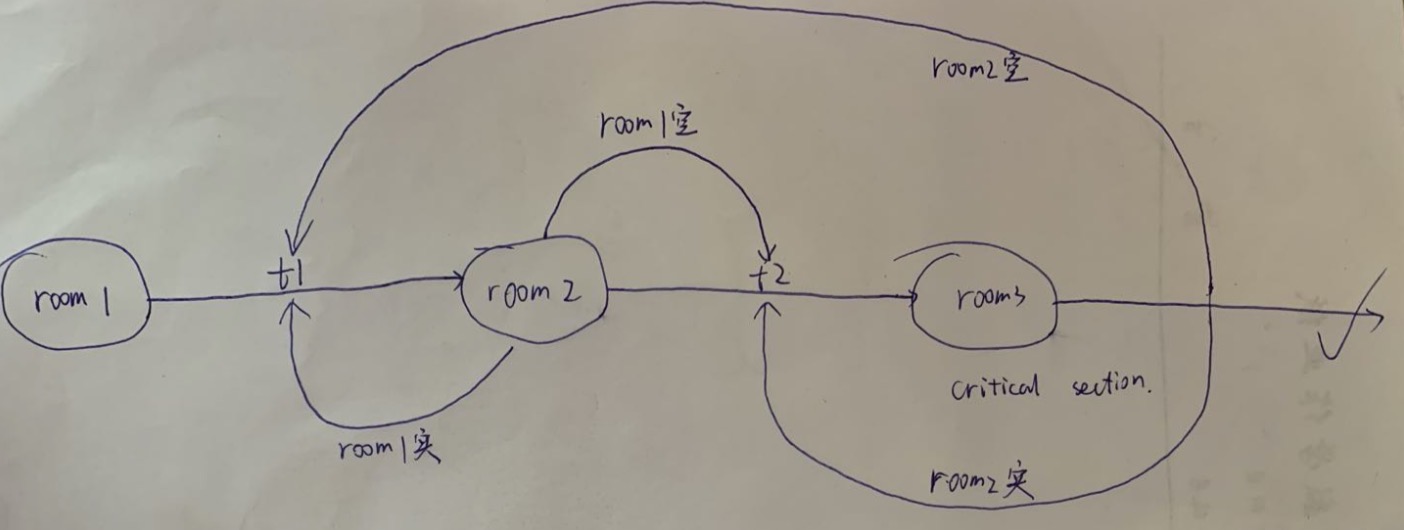 room2空
room1空
t1
t2
room 1
room 2
room3
critical section.
room1实
room2实